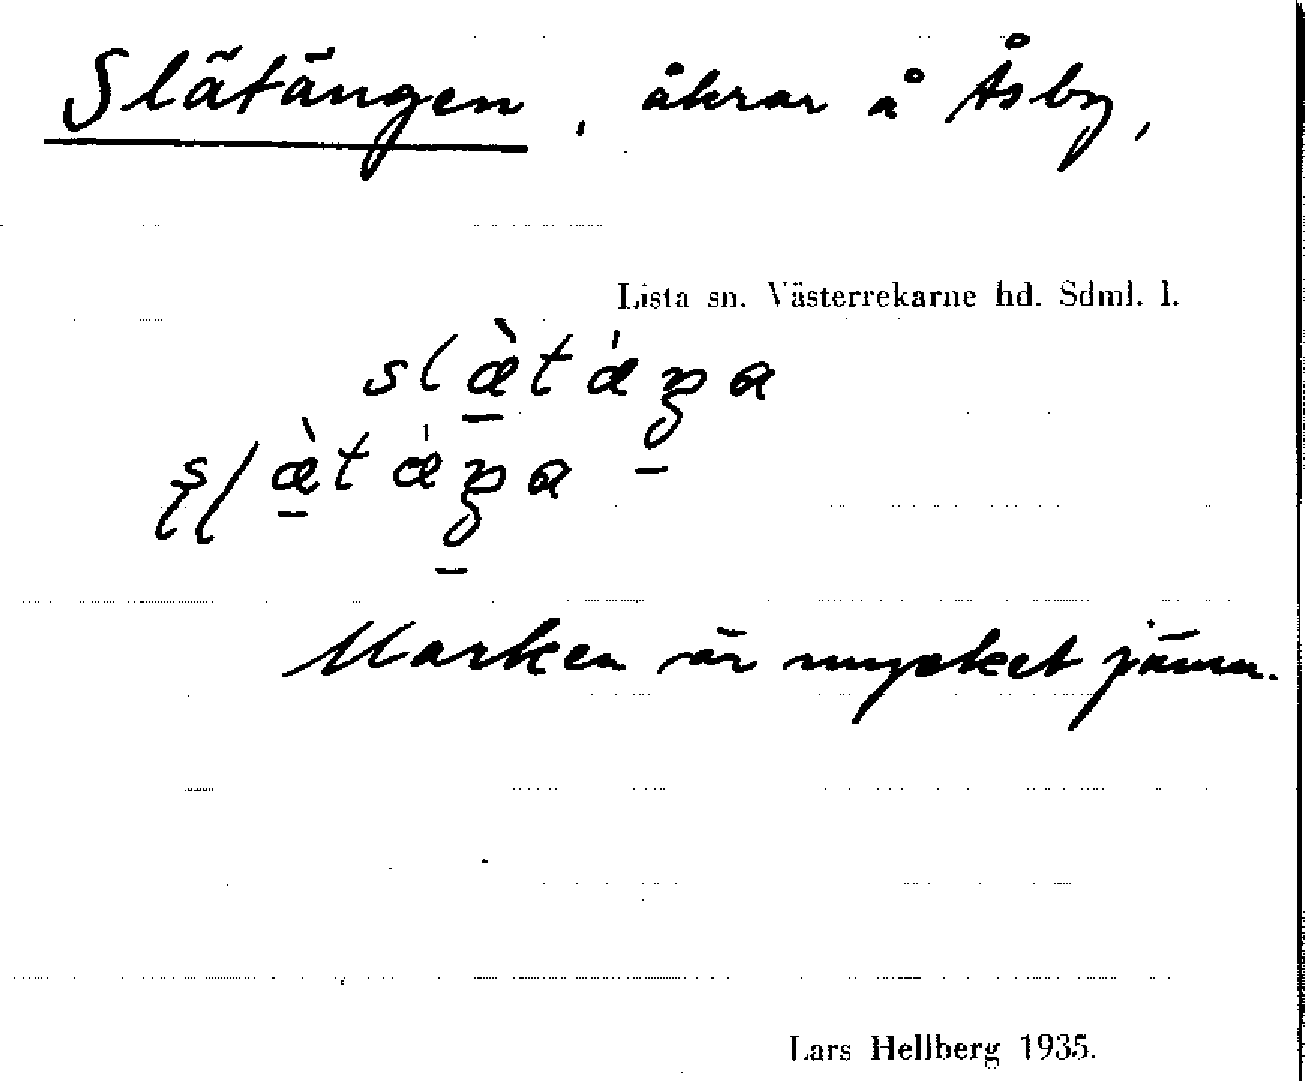 Slätängen, åkrar å Åsby,
Lista sn. Västerrekarne hd. Sdml. l.
slæ̀tǽŋa
ʂlæ̀tǽŋa
Marken är mycket jämn.
Lars Hellberg 1935.